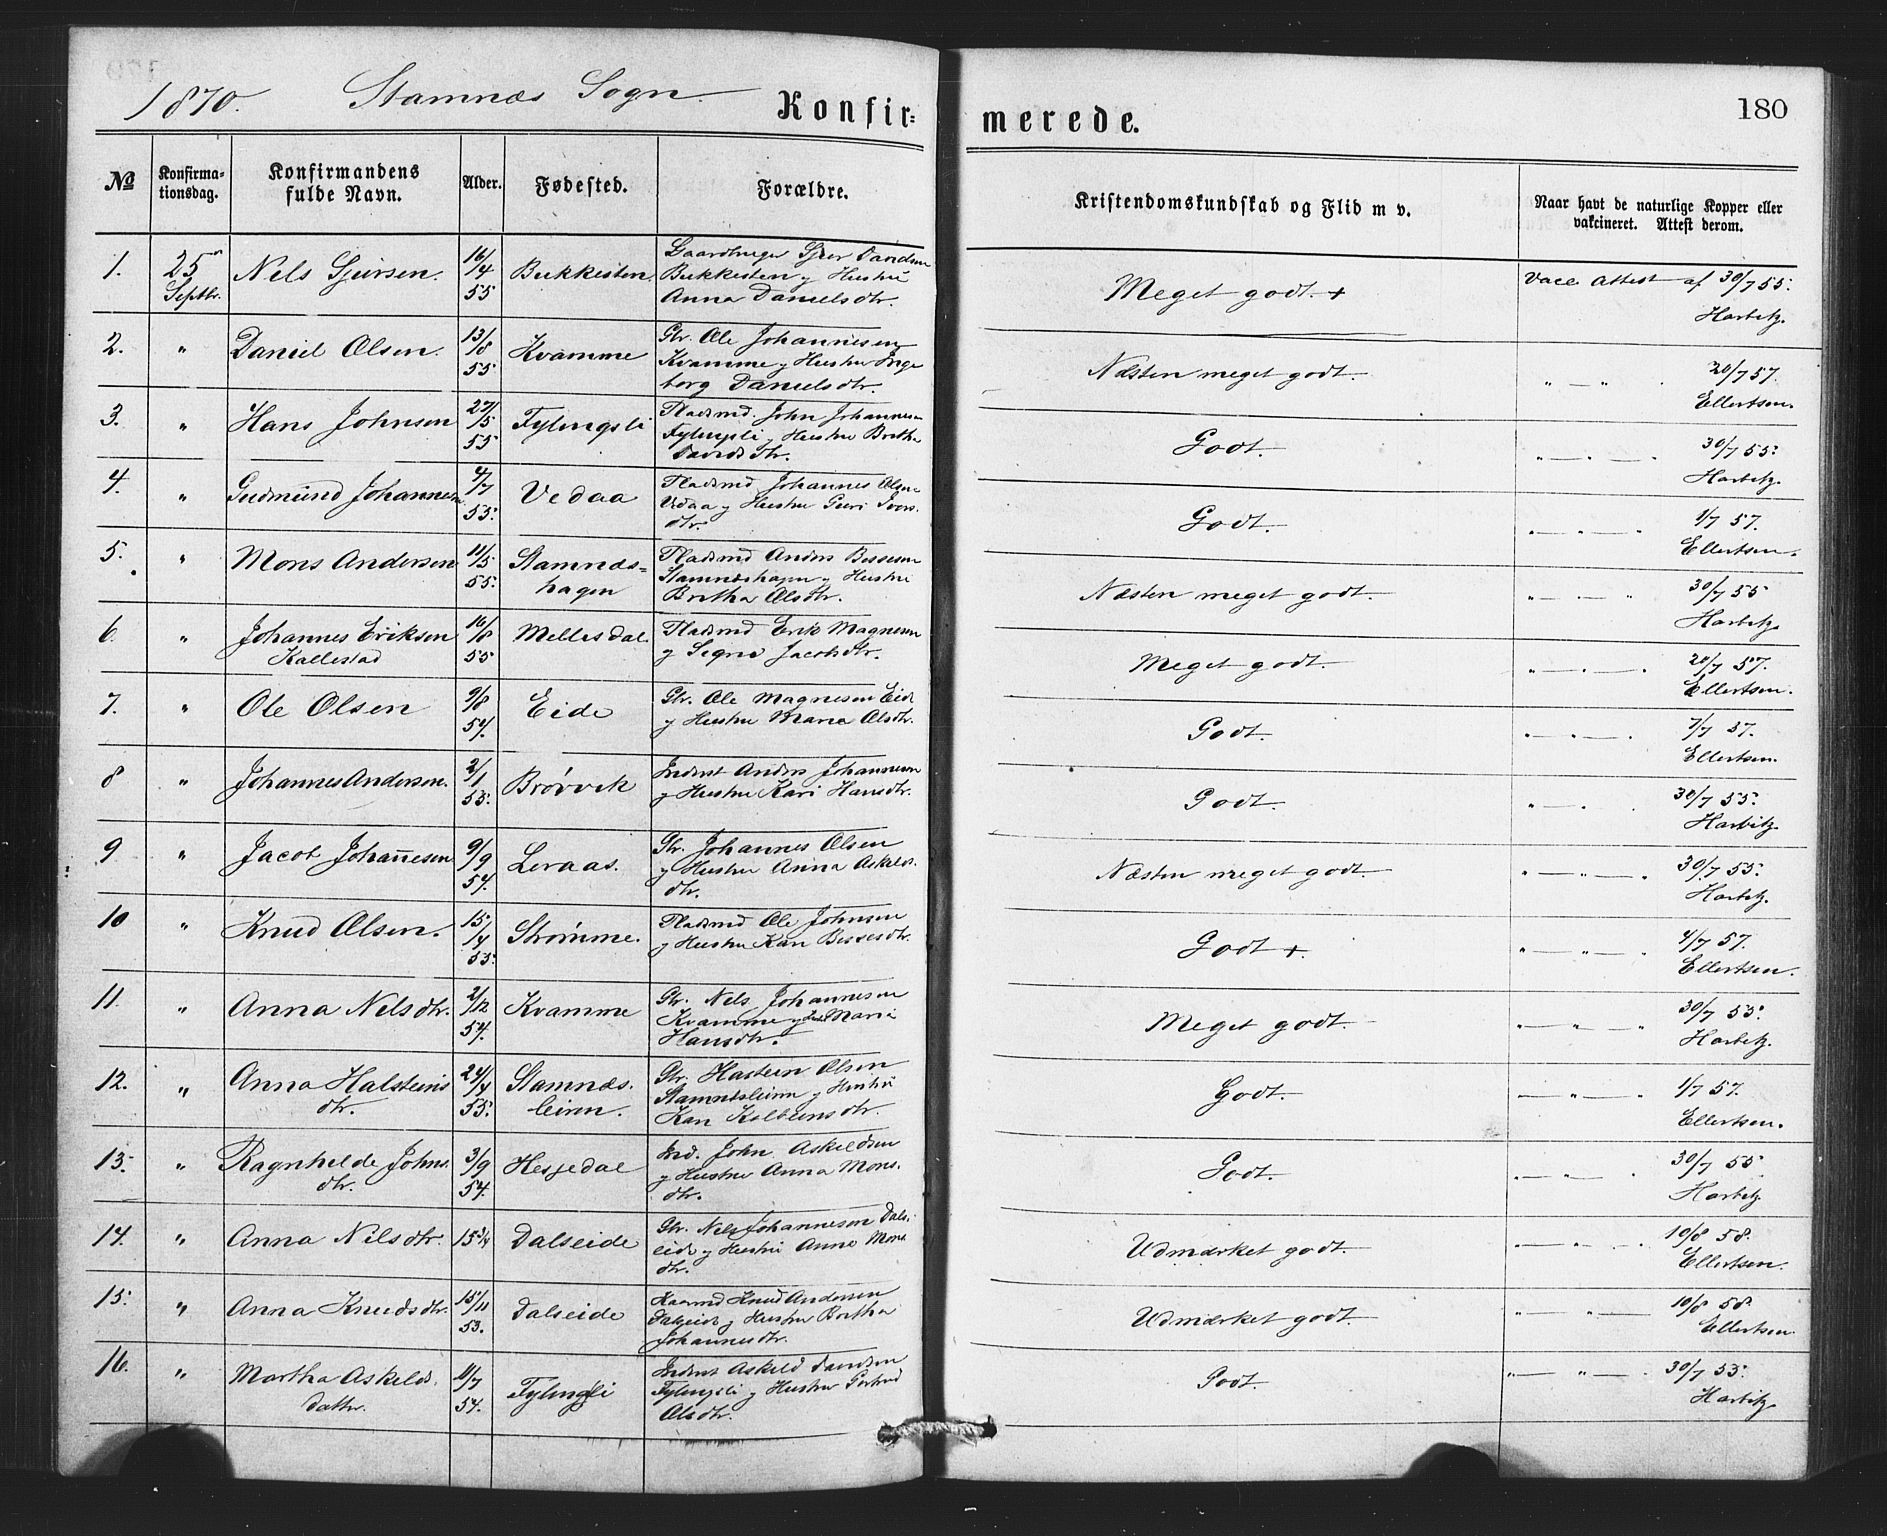 1870. Stamnæs Sogn.
Konfir=
merede.
180
№
Konfirma-
tionsdag.
Konfirmandens
fulde Navn.
Alder.
Fødested.
Forældre.
Kristendomskundskab og Flid m v.
Naar havt de naturlige Kopper eller
vakcineret. Attest derom.
1. 25 Septbr. Nels Sjursen. 16/4 55 Bukkesten Gaardbruger Sjur Davidsen
Bukkesten og Hustru
Anna Danielsdtr.
Meget godt. + Vacc attest af 30/7 55.
Harbitz.
2. " Daniel Olsen. 13/8 55 Kvamme Gbr. Ole Johannesen
Kvamme og Hustru Inge
borg Danielsdtr.
Næsten meget godt. " — " 20/7 57.
Ellertsen.
3. " Hans Johnsen 27/5 55 Fylingsli Pladsmd. John Johannesen
Fylingsli og Hustru Britha
Davidsdtr.
Godt. " — " — 30/7 55.
Harbitz.
4. " Gudmund Johannesen 4/7 55. Vedaa Pladsmd Johannes Olsen
Vedaa og Hustru Guri Ivers.
dtr.
Godt. " — " — " 1/7 57.
Ellertsen.
5. " Mons Andersen 11/5 55. Stamnæs=
hagen Pladsmd Anders Bessesen
Stamnæshagen og Hustru
Britha Olsdtr.
Næsten meget godt. " — " — " 30/7 55
Harbitz
6. " Johannes Eriksen
Kallestad 16/8 55 Mellesdal Pladsmd Erik Magnesen
og Signe Jacobsdtr.
Meget godt. " — " — " 20/7 57.
Ellertsen.
7. " Ole Olsen 9/8 54. Eide Gbr. Ole Magnesen Eide
og Hustru Marie Olsdtr.
Godt. " — " — " 7/7 57.
Ellertsen.
8 " Johannes Andersen. 2/1 55. Brørvik Inderst Anders Johannesen
og Hustru Kari Hansdtr.
Godt. " — " 30/7 55.
Harbitz
9 " Jacob Johannesen 9/9 54. Leraas. Gbr. Johannes Olsen
og Hustru Anna Askelds.
dtr.
Næsten meget godt. " — " — " 30/7 55.
Harbitz.
10 " Knud Olsen. 15/4 55. Strømme. Pladsmd Ole Johnsen
og Hustru Kari Bessesdtr.
Godt +. " — " — " 4/7 57.
Ellertsen.
11. " Anna Nelsdtr. 2/12 54. Kvamme Gbr. Nels Johannesen
Kvamme og Hustru Maria
Hansdtr.
Meget godt. " — " — " 30/7 55.
Harbitz.
12. " Anna Halsteins
dtr. 24/4 55. Stamnæs.
leiren. Gbr. Hastein Olsen
Stamnæsleiren og Hustru
Kari Kolbeinsdtr.
Godt. — " — " 1/7 57.
Ellertsen.
13. " Ragnhelde Johns.
dtr. 3/9 54. Hesjedal Ind. John Askeldsen
og Hustru Anna Mons.
dtr.
Godt. " — " — 30/7 55
Harbitz
14. " Anna Nilsdtr. 15 3/4 Dalseide Gbr. Nels Johannesen Dals.
eide og Hustru Anna Mons
dtr.
Udmærket godt. " — " 10/8 58.
Ellertsen.
15. " Anna Knudsdtr. 15/11 53. Dalseide Knud Andersen
Dalseide og Hustru Britha
Johannesdtr.
Udmærket godt. " — " — 10/8 58.
Ellertsen
16. " Martha Askelds.
datter. 11/7 54. Fylingsli Inderst Askeld Davidsen
Fylingsli og Hustru Gertrud
Olsdtr.
Godt. " — " — 30/7 55.
Harbitz